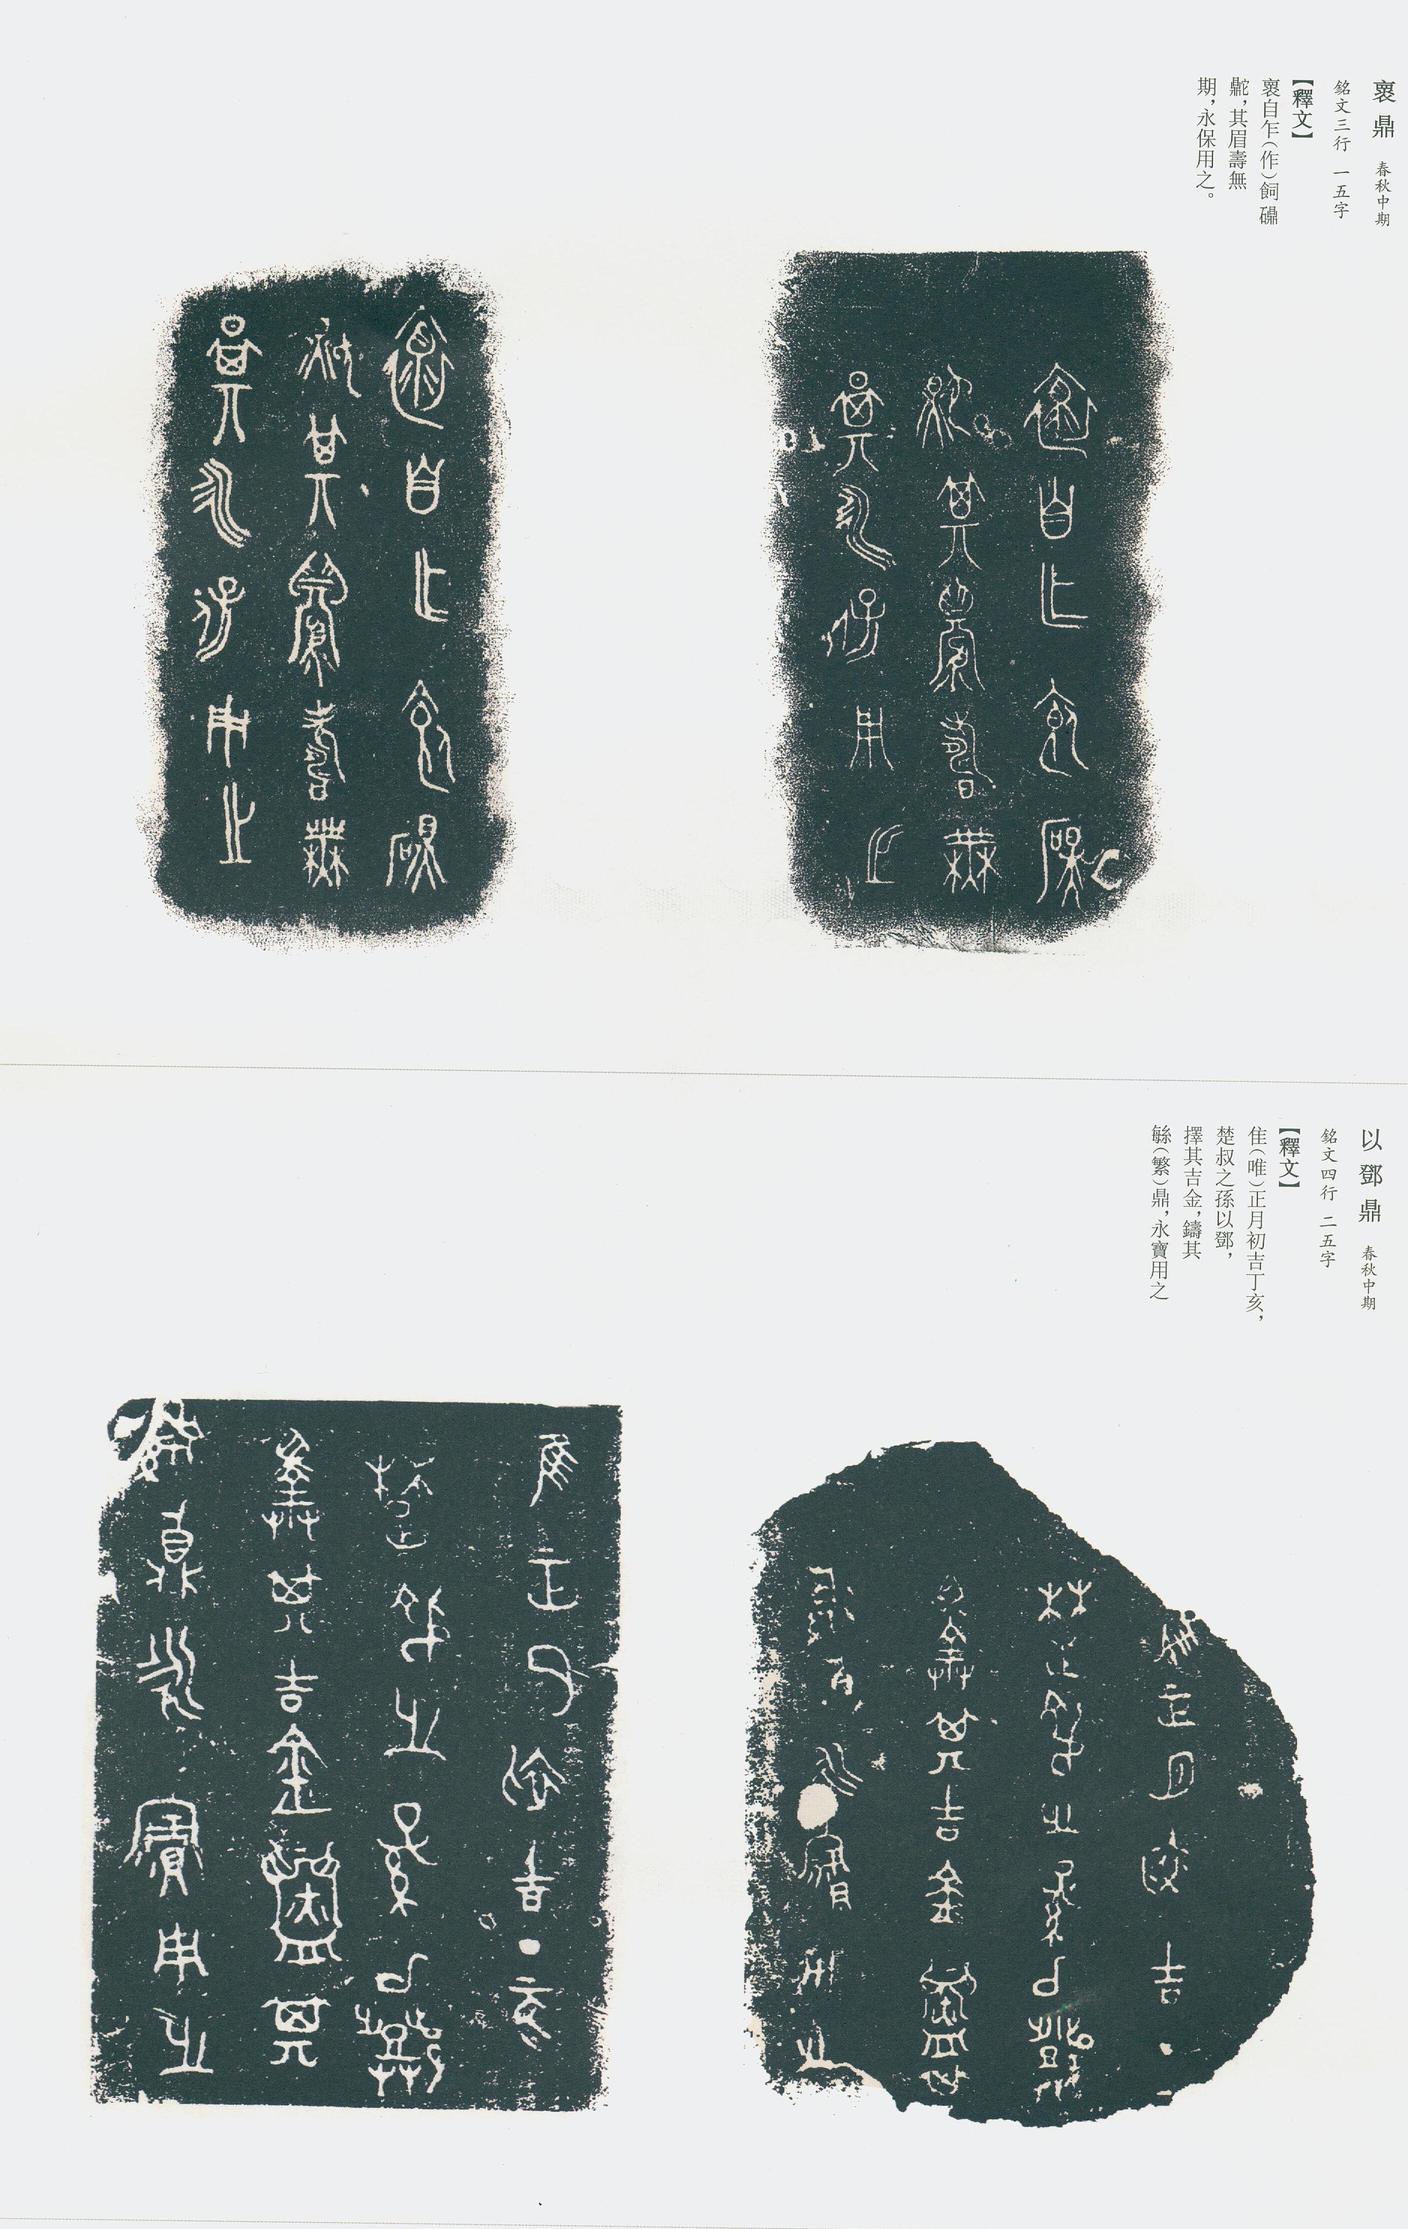 褱鼎 春秋中期
銘文三行 一五字
【釋文】
褱自乍（作）飼礵
鼧，其眉壽無
期，永保用之。
以鄧鼎 春秋中期
銘文四行 二五字
【釋文】
隹（唯）正月初吉丁亥，
楚叔之孫以鄧，
擇其吉金，鑄其
緐（繁）鼎，永寶用之